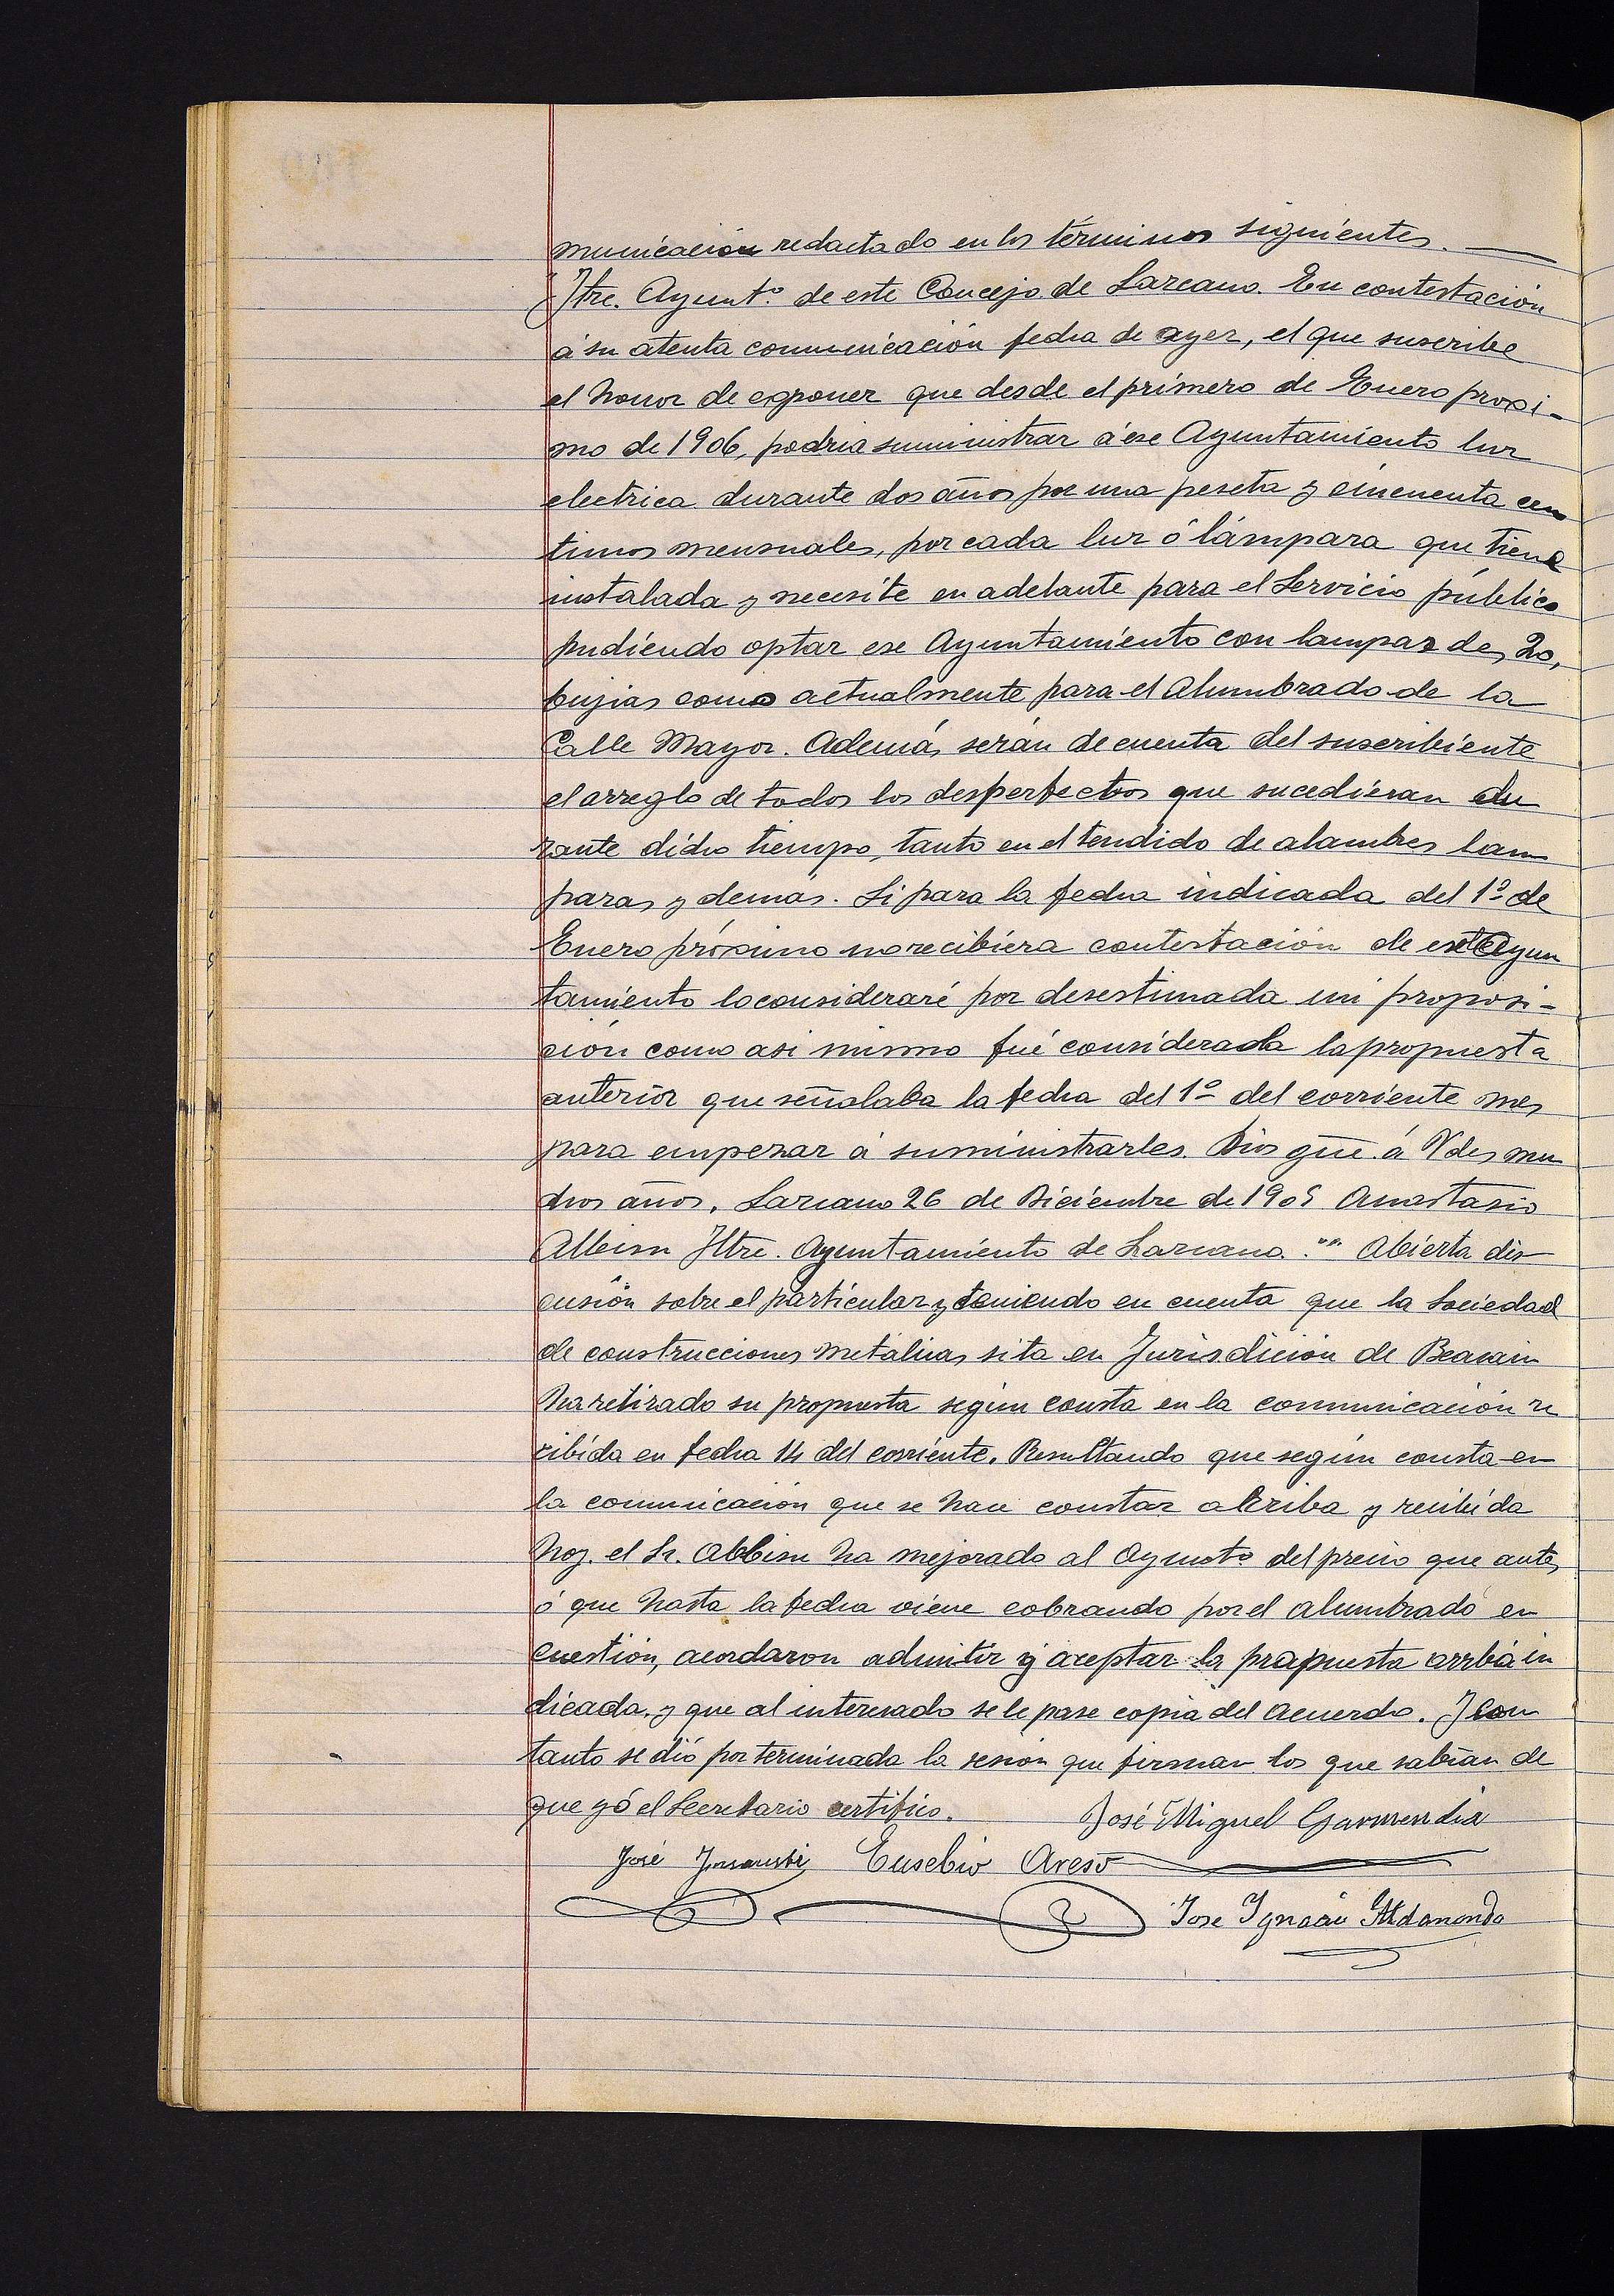 municacion redactado en los términos siguientes.
Iltre. Ayunt.º de este Concejo de Lazcano. En contestación
á su atenta comunicación fecha de ayer, el que suscribe
el honor de exponer que desde el primero de Enero proxi-
mo de 1906, podria suministrar á ese Ayuntamiento luz
electrica durante dos años por una peseta y cincuenta cen
timos mensuales, por cada luz ó lámpara que tiene
instalada y necesite en adelante para el Servicio público
pudiendo optar ese Ayuntamiento con lampas de 20,
bujias como actualmente para el Alumbrado de la
Calle Mayor. Además serán de cuenta del suscribiente
el arreglo de todos los desperfectos que sucedieran du
rante dicho tiempo, tanto en el tendido de alambres lam
paras y demas. Si para la fecha indicada del 1º de
Enero próximo no recibiera contestación de este Ayun
tamiento lo consideraré por desestimada mi proposi-
ción como asi mismo fué considerada la propuesta
anterior que señalaba la fecha del 1º del corriente mes
para empezar á suministrarles. Dios gũe á Vdes mu
chos años. Lazcano 26 de Diciembre de 1905 Anastasio
Albisu Iltre. Ayuntamiento de Lazcano." Abierta dis
cusión sobre el particular y teniendo en cuenta que la Sociedad
de construcciones Metálicas sita en Jurisdicion de Beasain
ha retirado su propuesta según consta en la comunicación re
cibida en fecha 14 del corriente. Resultando que según consta en
la comunicación que se hace constar arriba y recibida
hoy. el Sr. Albisu ha mejorado al Ayunto del precio que antes
ó que hasta la fecha viene cobrando por el alumbrado en
cuestión, acordaron admitir y aceptar la propuesta arriba in
dicada, y que al interesado se le pase copia del acuerdo. Y con
tanto se dió por terminada la sesión que firman los que sabían de
que yó el Secretario certifico. José Miguel Garmendia
José Insausti Eusebio Areso
Jose Ignacio Aldanondo